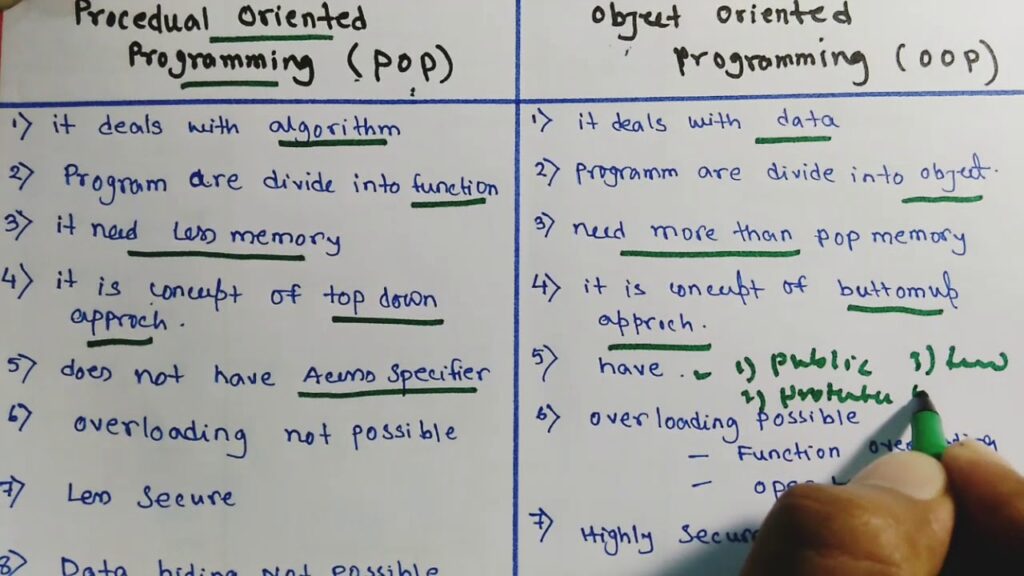 Procedual Oriented
Programming (POP)
1) it deals with algorithm
2) Program are divide into function
3) it need Less memory
4) it is concept of top down
approch.
5) does not have Access Specifier
6) overloading not possible
7) Less Secure
8) Data hiding not possible
Object Oriented
Programming (OOP)
1) it deals with data
2) programm are divide into object.
3) need more than pop memory
4) it is concept of buttomup
approch.
5) have. 1) public 3)
2)
6) overloading possible
- Function
-
7) Highly